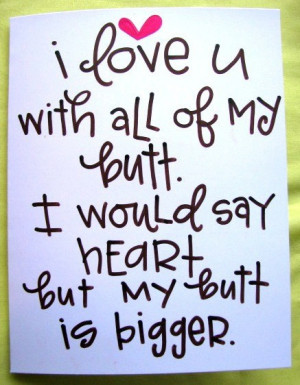 i love u
with all of my
butt.
I would say
heart
but my butt
is bigger.